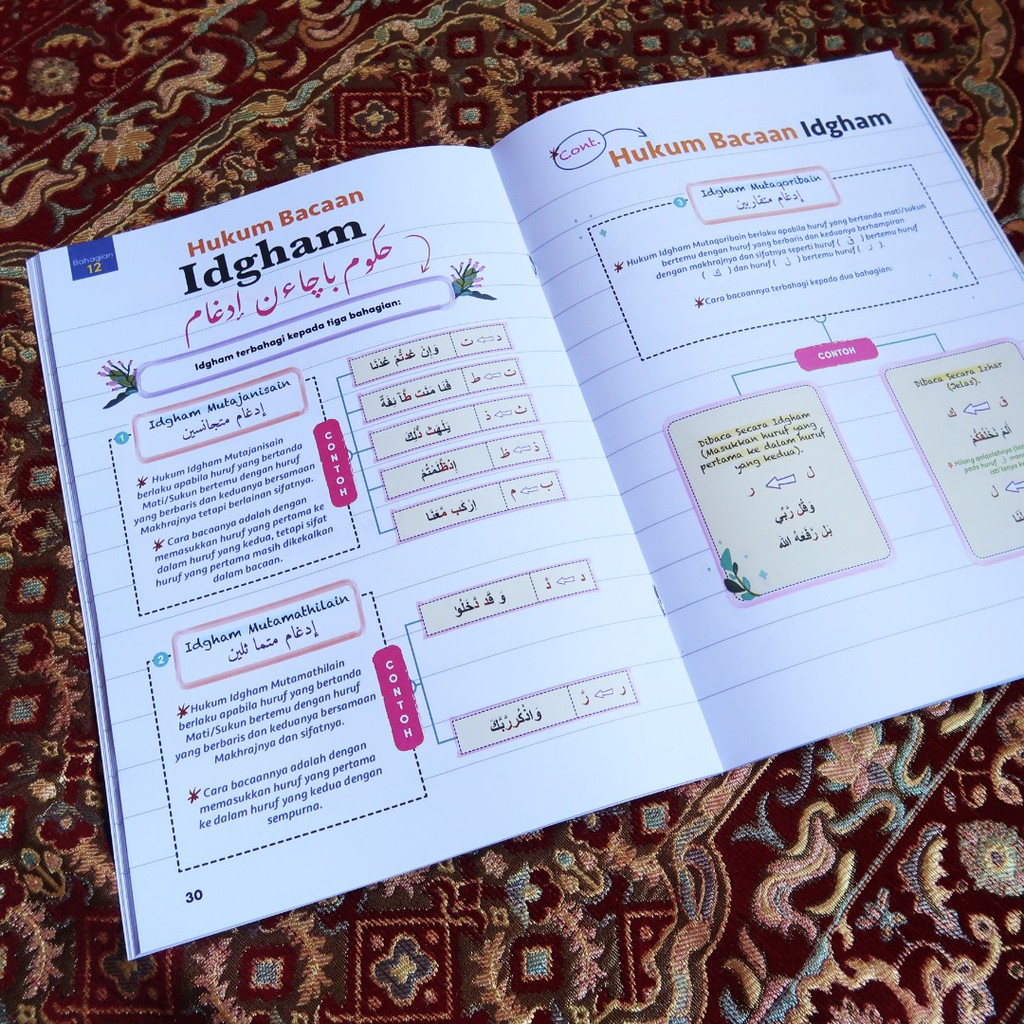 Bahagian
12
Hukum Bacaan
Idgham
حكوم باچاءن إدغام
Idgham terbahagi kepada tiga bahagian:
1
Idgham Mutajanisain
إدغام متجانسين
✶ Hukum Idgham Mutajanisain
berlaku apabila huruf yang bertanda
Mati/Sukun bertemu dengan huruf
yang berbaris dan keduanya bersamaan
Makhrajnya tetapi berlainan sifatnya.
✶ Cara bacaanya adalah dengan
memasukkan huruf yang pertama ke
dalam huruf yang kedua, tetapi sifat
huruf yang pertama masih dikekalkan
dalam bacaan.
CONTOH
د ⇦ ت
وَإِنْ عُدتُّمْ عُدْنَا
ت ⇦ ط
فَـَٔامَنَت طَّآئِفَةٌ
ث ⇦ ذ
يَلْهَث ذَّلِكَ
ذ ⇦ ظ
إِذظَّلَمْتُمْ
ب ⇦ م
ارْكَب مَّعَنَا
2
Idgham Mutamathilain
إدغام متما ثلين
✶ Hukum Idgham Mutamathilain
berlaku apabila huruf yang bertanda
Mati/Sukun bertemu dengan huruf
yang berbaris dan keduanya bersamaan
Makhrajnya dan sifatnya.
✶ Cara bacaannya adalah dengan
memasukkan huruf yang pertama
ke dalam huruf yang kedua dengan
sempurna.
CONTOH
د ⇦ دَّ
وَ قَد دَّخَلُوْا
ر ⇦ رَّ
وَاذْكُررَّبَّكَ
30
✶Cont.
Hukum Bacaan Idgham
3
Idgham Mutaqoribain
إدغام متقاربين
✶ Hukum Idgham Mutaqoribain berlaku apabila huruf yang bertanda mati/sukun
bertemu dengan huruf yang berbaris dan keduanya berhampiran
dengan makhrajnya dan sifatnya seperti huruf ( ق ) bertemu huruf
( ك ) dan huruf ( ل ) bertemu huruf ( ر ).
✶Cara bacaannya terbahagi kepada dua bahagian:
CONTOH
Dibaca Secara Idgham
(Masukkan huruf yang
pertama ke dalam huruf
yang kedua).
ل ⇦ ر
وَقُل رَّبِّي
بَل رَّفَعَهُ الله
Dibaca Secara Izhar
(Jelas).
ق ⇦ ك
أَلَمْ نَخْلُقكُّم
Hilang qalqalahnya
pada huruf
ل